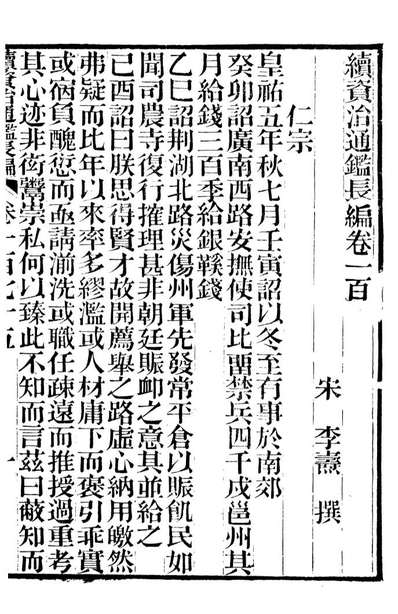 續資治通鑑長編卷一百
宋 李燾 撰
仁宗
皇祐五年秋七月壬寅詔以冬至有事於南郊
癸卯詔廣南西路安撫使司比留禁兵四千戍邕州其
月給錢三百季給銀鞵錢
乙巳詔荆湖北路災傷州軍先發常平倉以賑飢民如
聞司農寺復行搉理甚非朝廷賑卹之意其並給之
己酉詔曰朕思得賢才故開薦舉之路虛心納用皦然
弗疑而比年以來率多繆濫或人材庸下而褒引乖實
或宿負醜愆而亟請湔洗或職任疎遠而推授過重考
其心迹非衒鬻崇私何以臻此不知而言茲曰蔽知而
續資治通鑑長編 卷一百七十五 一